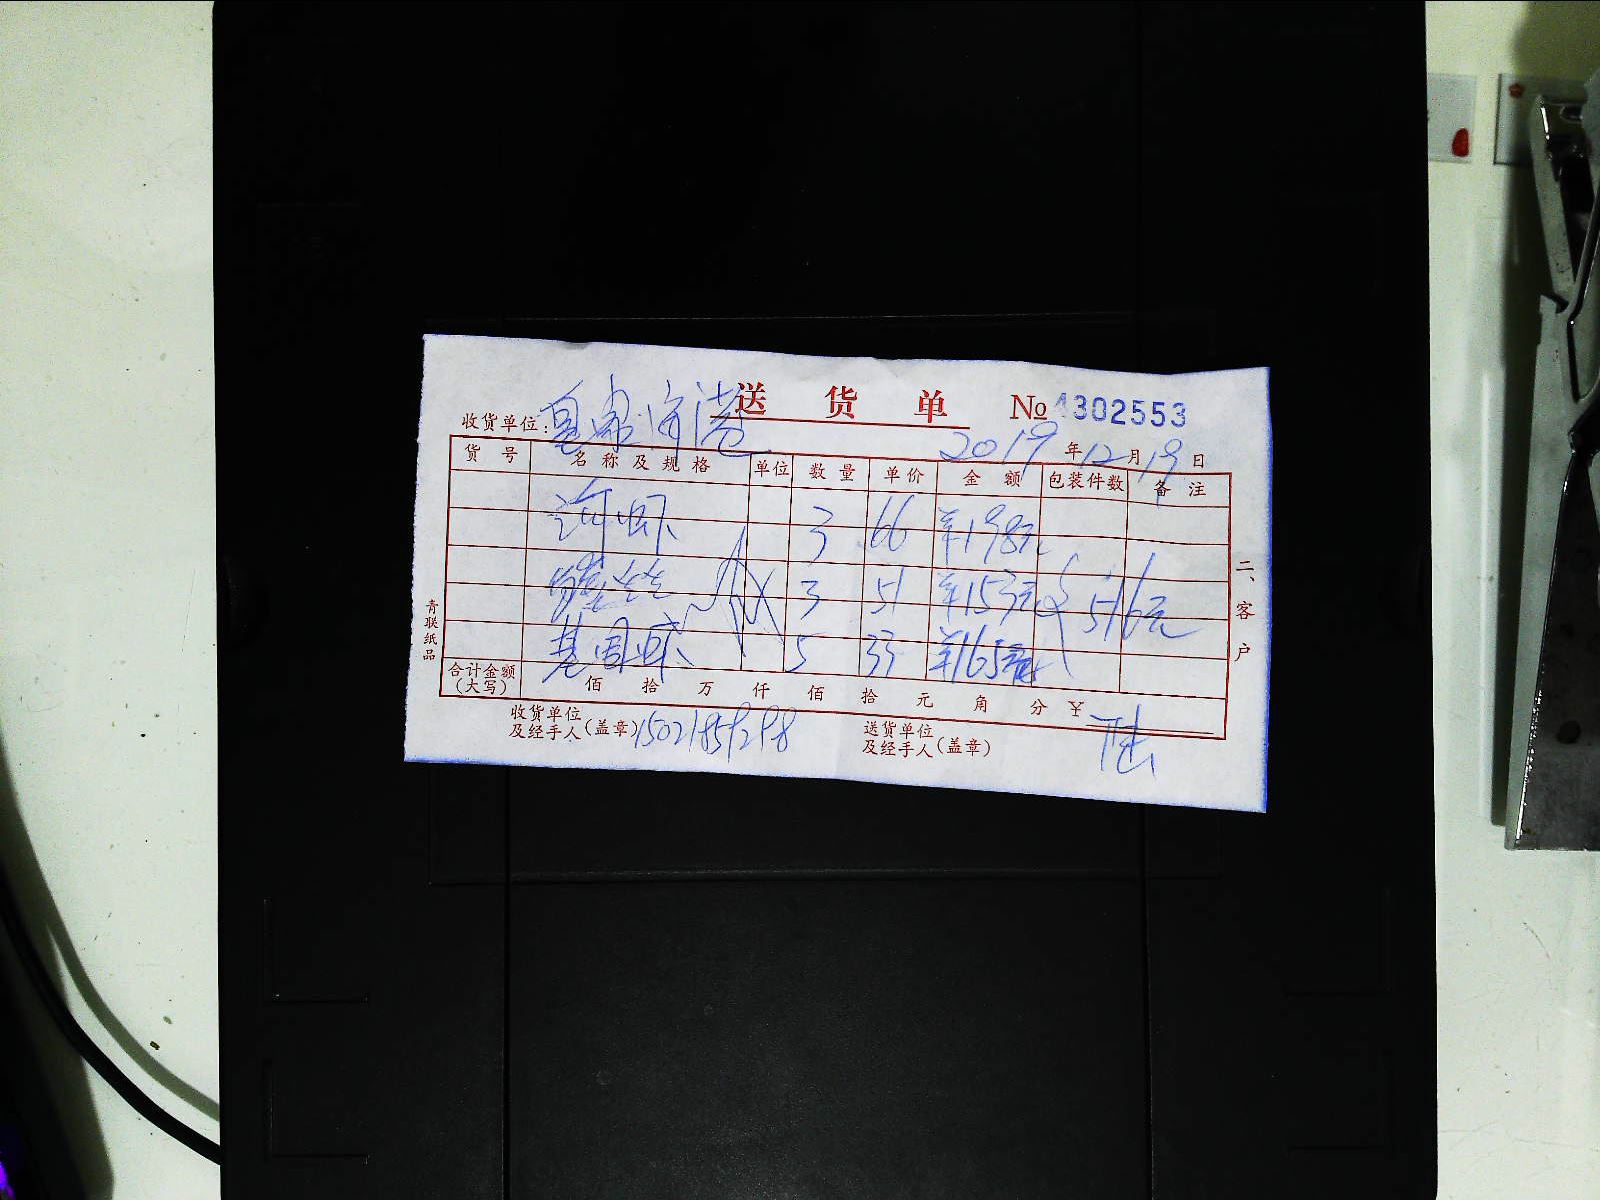 送 货 单 № 4302553
收货单位:
2019 年 12 月 19 日
货 号 名 称 及 规 格 单位 数 量 单 价 金 额 包装件数 备 注
河虾 3 66 ¥198元
3 51 ¥153元 516元
基围虾 5 33 ¥165元
合计金额(大写) 佰 拾 万 仟 佰 拾 元 角 分 ¥
收货单位及经手人(盖章)
送货单位及经手人(盖章)
二、客户
青联纸品